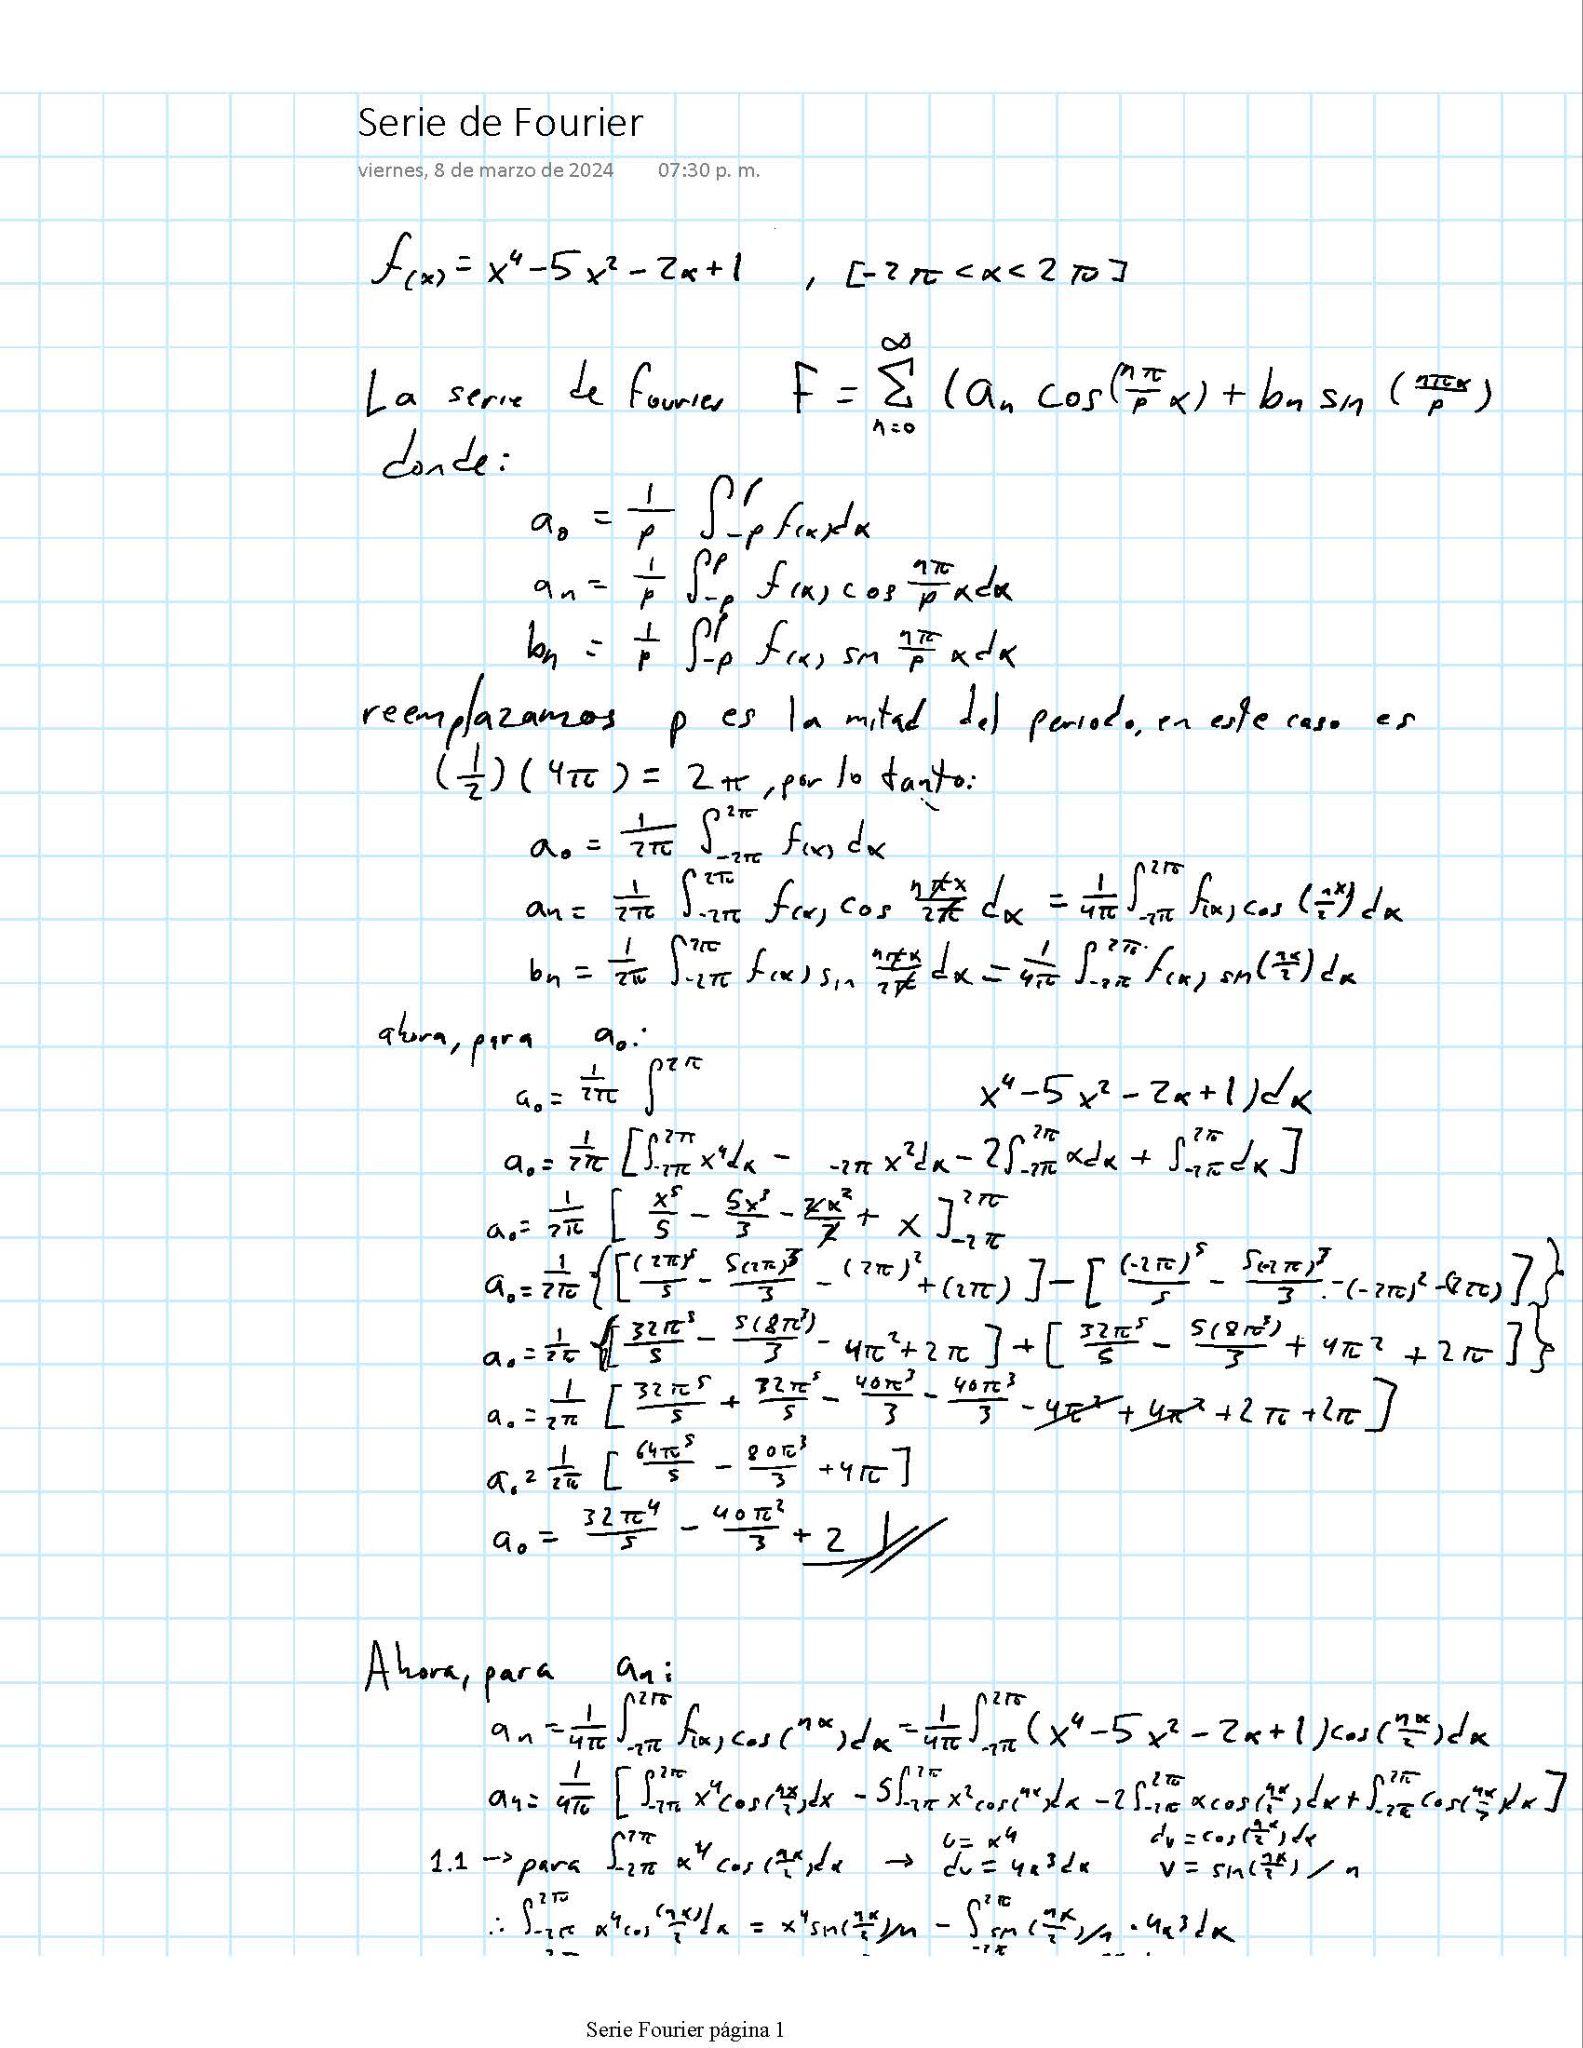 Serie de Fourier
viernes, 8 de marzo de 2024 07:30 p. m.
f(x) = x⁴ - 5x² - 2x + 1 , [-2π < x < 2π]
La serie de Fourier F = ∑_{n=0}^{∞} (aₙ cos(nπ/p x) + bₙ sin (nπx/p)
donde:
a₀ = 1/p ∫_{-p}^{p} f(x) dx
aₙ = 1/p ∫_{-p}^{p} f(x) cos nπ/p x dx
bₙ = 1/p ∫_{-p}^{p} f(x) sin nπ/p x dx
reemplazamos p es la mitad del periodo, en este caso es
(1/2)(4π) = 2π, por lo tanto:
a₀ = 1/2π ∫_{-2π}^{2π} f(x) dx
aₙ = 1/2π ∫_{-2π}^{2π} f(x) cos nπx/2π dx = 1/4π ∫_{-2π}^{2π} f(x) cos (nx/2) dx
bₙ = 1/2π ∫_{-2π}^{2π} f(x) sin nπx/2π dx = 1/4π ∫_{-2π}^{2π} f(x) sin(nx/2) dx
ahora, para a₀:
a₀ = 1/2π ∫^{2π} x⁴ - 5x² - 2x + 1) dx
a₀ = 1/2π [∫_{-2π}^{2π} x⁴dx - _{-2π} x²dx - 2∫_{-2π}^{2π} xdx + ∫_{-2π}^{2π} dx]
a₀ = 1/2π [x⁵/5 - 5x³/3 - 2x²/2 + x]_{-2π}^{2π}
a₀ = 1/2π {[(2π)⁵/5 - 5(2π)³/3 - (2π)² + (2π)] - [(-2π)⁵/5 - 5(-2π)³/3 - (-2π)² - (2π)]}
a₀ = 1/2π {[32π⁵/5 - 5(8π³)/3 - 4π² + 2π] + [32π⁵/5 - 5(8π³)/3 + 4π² + 2π]}
a₀ = 1/2π [32π⁵/5 + 32π⁵/5 - 40π³/3 - 40π³/3 - 4π² + 4π² + 2π + 2π]
a₀ = 1/2π [64π⁵/5 - 80π³/3 + 4π]
a₀ = 32π⁴/5 - 40π²/3 + 2
Ahora, para aₙ:
aₙ = 1/4π ∫_{-2π}^{2π} f(x) cos(nx) dx = 1/4π ∫_{-2π}^{2π} (x⁴ - 5x² - 2x + 1) cos(nx/2) dx
aₙ = 1/4π [∫_{-2π}^{2π} x⁴cos(nx/2)dx - 5∫_{-2π}^{2π} x²cos(nx)dx - 2∫_{-2π}^{2π} xcos(nx/2)dx + ∫_{-2π}^{2π} cos(nx/2)dx]
1.1 → para ∫_{-2π}^{2π} x⁴ cos(nx/2)dx → u = x⁴ dv = cos(nx/2)dx
du = 4x³dx v = sin(nx/2)/n
∴ ∫_{-2π}^{2π} x⁴cos(nx/2)dx = x⁴sin(nx/2)/n - ∫_{-2π}^{2π} sin(nx/2)/n · 4x³dx
Serie Fourier página 1